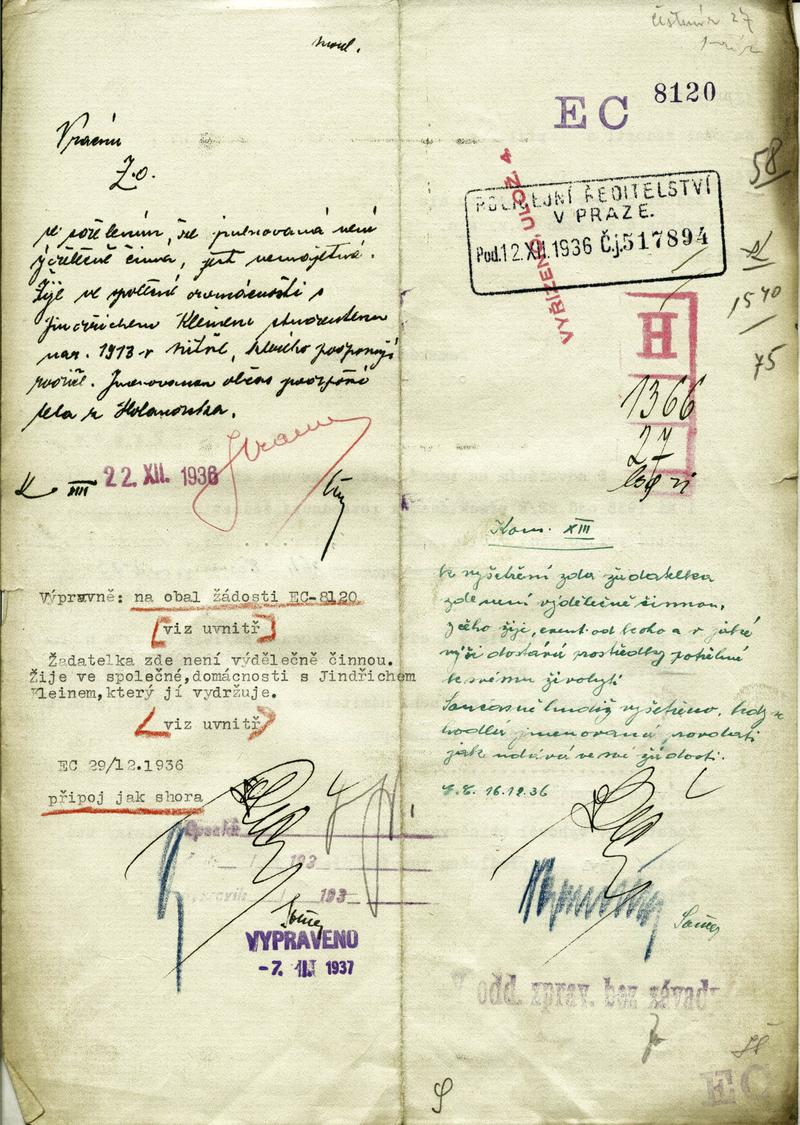 Vracím
Z.o.
se sdělením, že jmenovaná není
výdělečně činna, jest nemajetná.
Žije ve společné domácnosti s
Jindřichem Kleinem studentem
nar. 1913 v Nitře, kterého podporují
rodiče. Jmenovanou občas podporuje
teta z Holandska.
XIII 22. XII. 1936
Výpravně: na obal žádosti EC-8120
viz uvnitř
Žadatelka zde není výdělečně činnou.
Žije ve společné,domácnosti s Jindřichem
Kleinem,který jí vydržuje.
viz uvnitř
EC 29/12.1936
připoj jak shora
Opsal:
193
193
VYPRAVENO
-7. 1937
27
EC 8120
58
POLICEJNÍ ŘEDITELSTVÍ
V PRAZE.
Pod.12.XII.1936 Č.j.517894
VYŘÍZENO, ULOŽ. 4.
1540
75
H
1366
27
Kom. XIII
k vyšetření zda žadatelka
zde není výdělečně činnou,
z čeho žije, event. od koho a v jaké
výši dostává prostředky potřebné
ke svému živobytí.
Současně budiž vyšetřeno, kdy
hodlá jmenovaná provdati
jak udává ve své žádosti.
16.12.36
odd. zprav. bez závad
EC